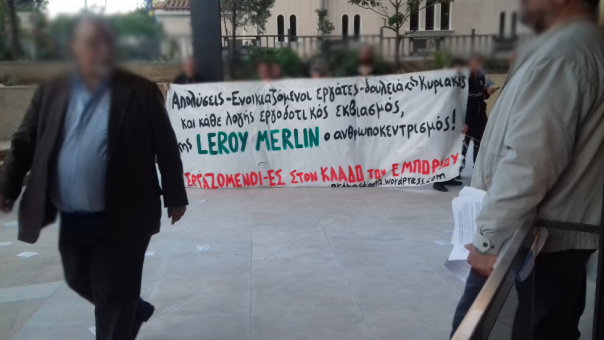 Απολύσεις-Ενοικιαζόμενοι εργάτες-δουλειά τις Κυριακές
και κάθε λογής εργοδοτικός εκβιασμός,
της LEROY MERLIN ο ανθρωποκεντρισμός!
ΕΡΓΑΖΟΜΕΝΟΙ-ΕΣ ΣΤΟΝ ΚΛΑΔΟ ΤΟΥ ΕΜΠΟΡΙΟΥ
orthostasia.wordpress.com